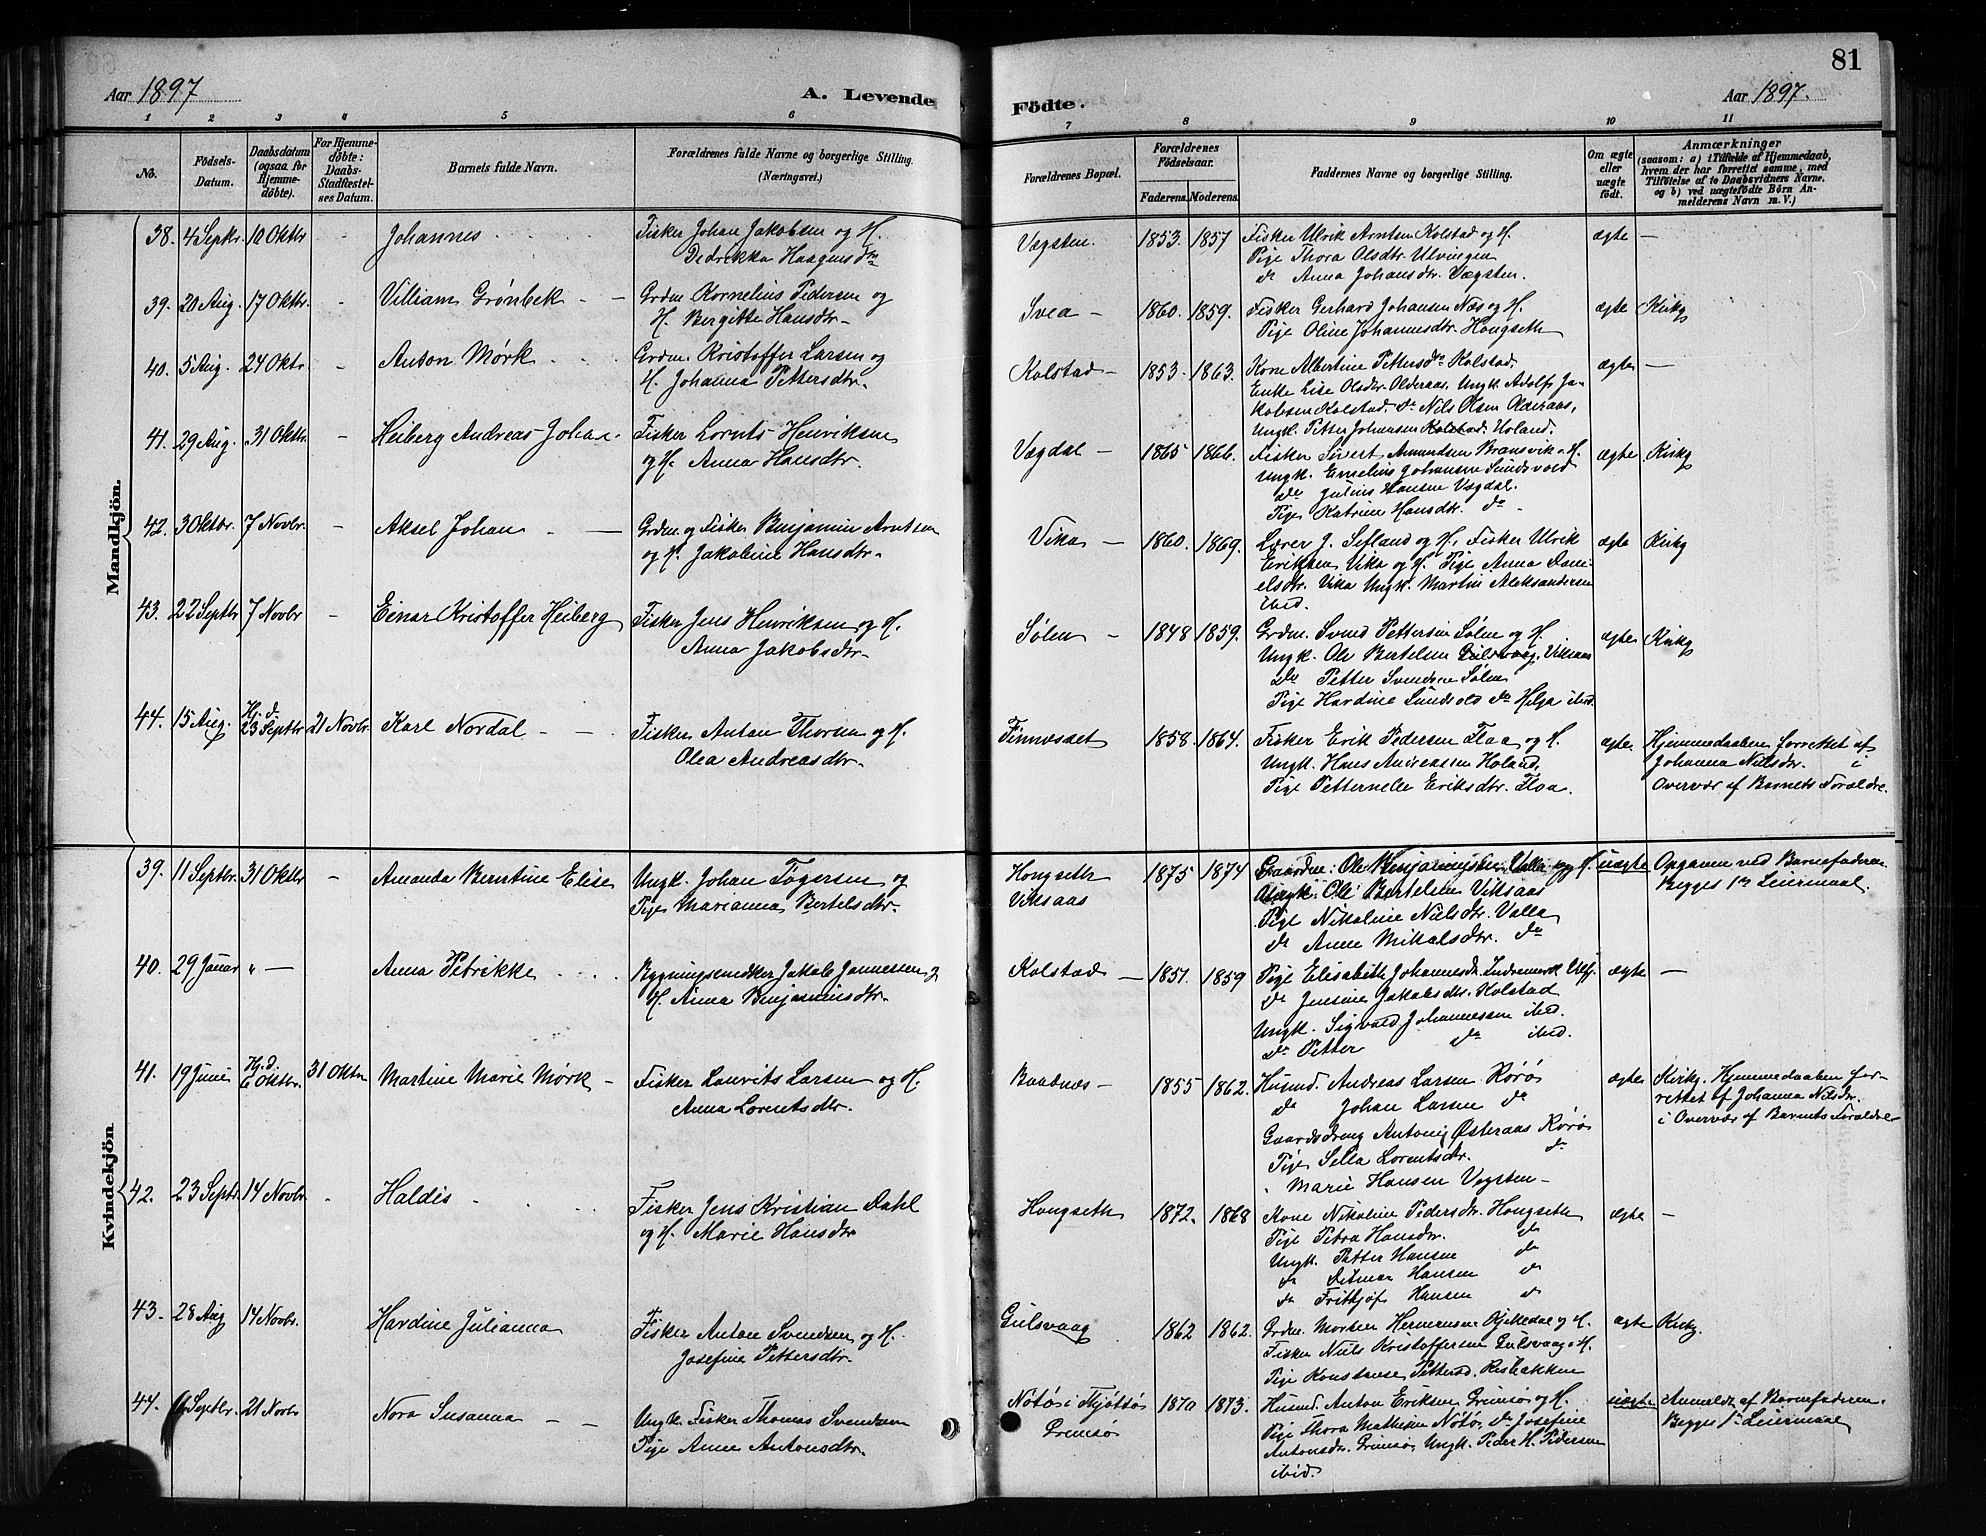 81
Aar 1897
A. Levende Födte.
Aar 1897.
1 2 3 4 5 6 7 8 9 10 11
No.
Födsels-Datum.
Daabsdatum (ogsaa for Hjemmedöbte).
For Hjemmedöbte: Daabs-Stadfæstelses Datum.
Barnets fulde Navn.
Forældrenes fulde Navne og borgerlige Stilling. (Næringsvei.)
Forældrenes Bopæl.
Forældrenes Födselsaar.
Faderens. Moderens.
Faddernes Navne og borgerlige Stilling.
Om ægte eller uægte födt.
Anmærkninger
(saasom: a) i Tilfælde af Hjemmedaab, hvem der har forrettet samme, med Tilföielse af to Daabsvidners Navne. og b) ved uægtefödte Börn Anmelderens Navn m. V.)
Mandkjön.
38. 4 Septbr. 10 Oktbr - Johannes
Fisker Johan Jakobsen og H.
Dedrikka Haagensdtr
Vægsten. 1853. 1857
Fisker Ulrik Arntsen Kolstad og H.
Pige Thora Olsdtr Ulvingen
do Anna Johansdtr. Vægsten.
ægte -
39. 20 Aug. 17 Oktbr. - Villiam Grønbek -
Grdm. Kornelius Pedersen og
H. Bergitte Hansdtr-
Svea - 1860. 1859.
Fisker Gerhard Johansen Næs og H.
Pige Oline Johannesdtr Hongseth
ægte Kirkg
40. 5 Aug. 24 Oktr. - Anton Mørk
Grdm. Kristoffer Larsen og
H. Johanna Pettersdtr.
Kolstad - 1853. 1863.
Kone Albertine Pettersdtr Kolstad.
Enke Lise Olsdtr. Olderaas, Ungk. Adolf Ja-
kobsen Kolstad. do Nils Olsen Olderaas,
Ungk. Petter Johansen Kolstad. Holand.
ægte -
41. 29 Aug. 31 Oktbr. - Heiberg Andreas Johan.
Fisker Lornts Henriksen
og H. Anna Hansdtr.
Vægdal - 1865 1866.
Fisker Sivert Amundsen Bransvik o H.
Ungk. Emelius Johansen Sundsvold
do Julius Hansen Vægdal.
Pige Katrine Hansdtr. do
ægte Kirkg
42. 3 Oktbr. 7 Novbr. - Aksel Johan -
Grdm. og Fisker Benjamin Arntsen
og H. Jakobine Hansdtr.
Vika - 1860. 1869.
Lærer J. Sefland og H., Fisker Ulrik
Eriksen Vika og H. Pige Anna Dani-
elsdtr. Vika Ungk. Martin Aleksandersen
ibid.
ægte Kirkg
43. 22 Septbr 7 Novbr - Einar Kristoffer Heiberg
Fisker Jens Henriksen og H.
Anna Jakobsdtr.
Sølen - 1848 1859.
Grdm. Svend Pettersen Sølen og H.
Ungk. Ole Bertelsen Gulsvaag. Viksaas
do Petter Svendsen Sølen
Pige Hardine Sundsvold do Helga ibid.
ægte Kirkg
44. 15 Aug. Hj. d. 23 Septbr 21 Novbr. Karl Nordal - -
Fisker Anton Thorsen og H.
Olea Andreasdtr.
Finnesaet 1858. 1864.
Fisker Erik Pedersen Floa og H.
Ungk. Hans Andreassen Holand.
Pige Petternelle Eriksdtr. Floa.
ægte. Hjemmedaaben forrettet af
Johanna Nilsdtr. i
Overvær af Barnets Forældre.
Kvindekjön.
39. 11 Septbr. 31 Oktbr - Amanda Berntine Elise
Ungk. Johan Fagersen og
Pige Marianna Bertelsdtr.
Hongseth
Viksaas
1875 1874
Gaardm. Ole Benjaminsen Valla og H.
Ungk. Ole Bertelsen Viksaas
Pige Nikoline Nielsdtr. Valla
do Anne Mikalsdtr. do
uægte Opgaven ved Barnefaderen
Begges 1ste Leiermaal.
40. 29 Januar " - Anna Petrikke
Bygningssnedker Jakob Jannessen og
H. Anna Benjaminsdtr.
Kolstad - 1851. 1859
Pige Elisabeth Johannesdtr. Indremark
do Jensine Jakobsdtr. Kolstad
Ungk. Sigvald Johannessen ibid.
do Petter do ibid.
ægte -
41. 19 Juni Hj. d. 6 Oktbr. 31 Oktbr Martine Marie Mørk -
Fisker Laurits Larsen og H.
Anna Lorentsdtr.
Baadnæs - 1855 1862.
Husmd. Andreas Larsen Rørø
do Johan Larsen do
Gaardsdreng Antonij Østeraas Rørø
Pige Sella Lorentsdtr. do
" Marie Hansen Vegsten-
ægte Kirkg. Hjemmedaaben for-
rettet af Johanna Nilsdtr.
i Overvær af Barnets Forældre
42. 23 Septr. 14 Novbr. - Haldis
Fisker Jens Kristian Dahl
og H. Marie Hansdtr
Hongseth 1872. 1868
Kone Nikoline Pedersdtr. Hongseth
Pige Petra Hansdtr. do
Ungk. Petter Hansen do
do Ditmar Hansen do
do Frithjof Hansen do
ægte -
43. 28 Aug 14 Novbr. Hardine Julianna
Fisker Anton Svendsen og H.
Josefine Pettersdtr.
Gulsvaag 1862 1862.
Grdm. Morten Hermansen Kjelledal og H.
Fisker Niels Kristoffersen Gulsvaag o H.
Pige Konstanse Pettersd. Risbakken
ægte Kirkg.
44. Septbr. 21 Novbr Nora Susanna - -
Ungk. Fisker Thomas Svendsen
Pige Anne Antonsdtr.
Nötö i Thjöttö
Grimsö
1870 1873.
Husmd. Anton Eriksen Grimsö og H.
Pige Thora Mathisen Nötö. do Josefine
Antonsdtr. Grimsö, Ungk. Peder H. Pedersen
ibid.
uægte Anmeldt af Barnefaderen.
Begges 1ste Leiermaal